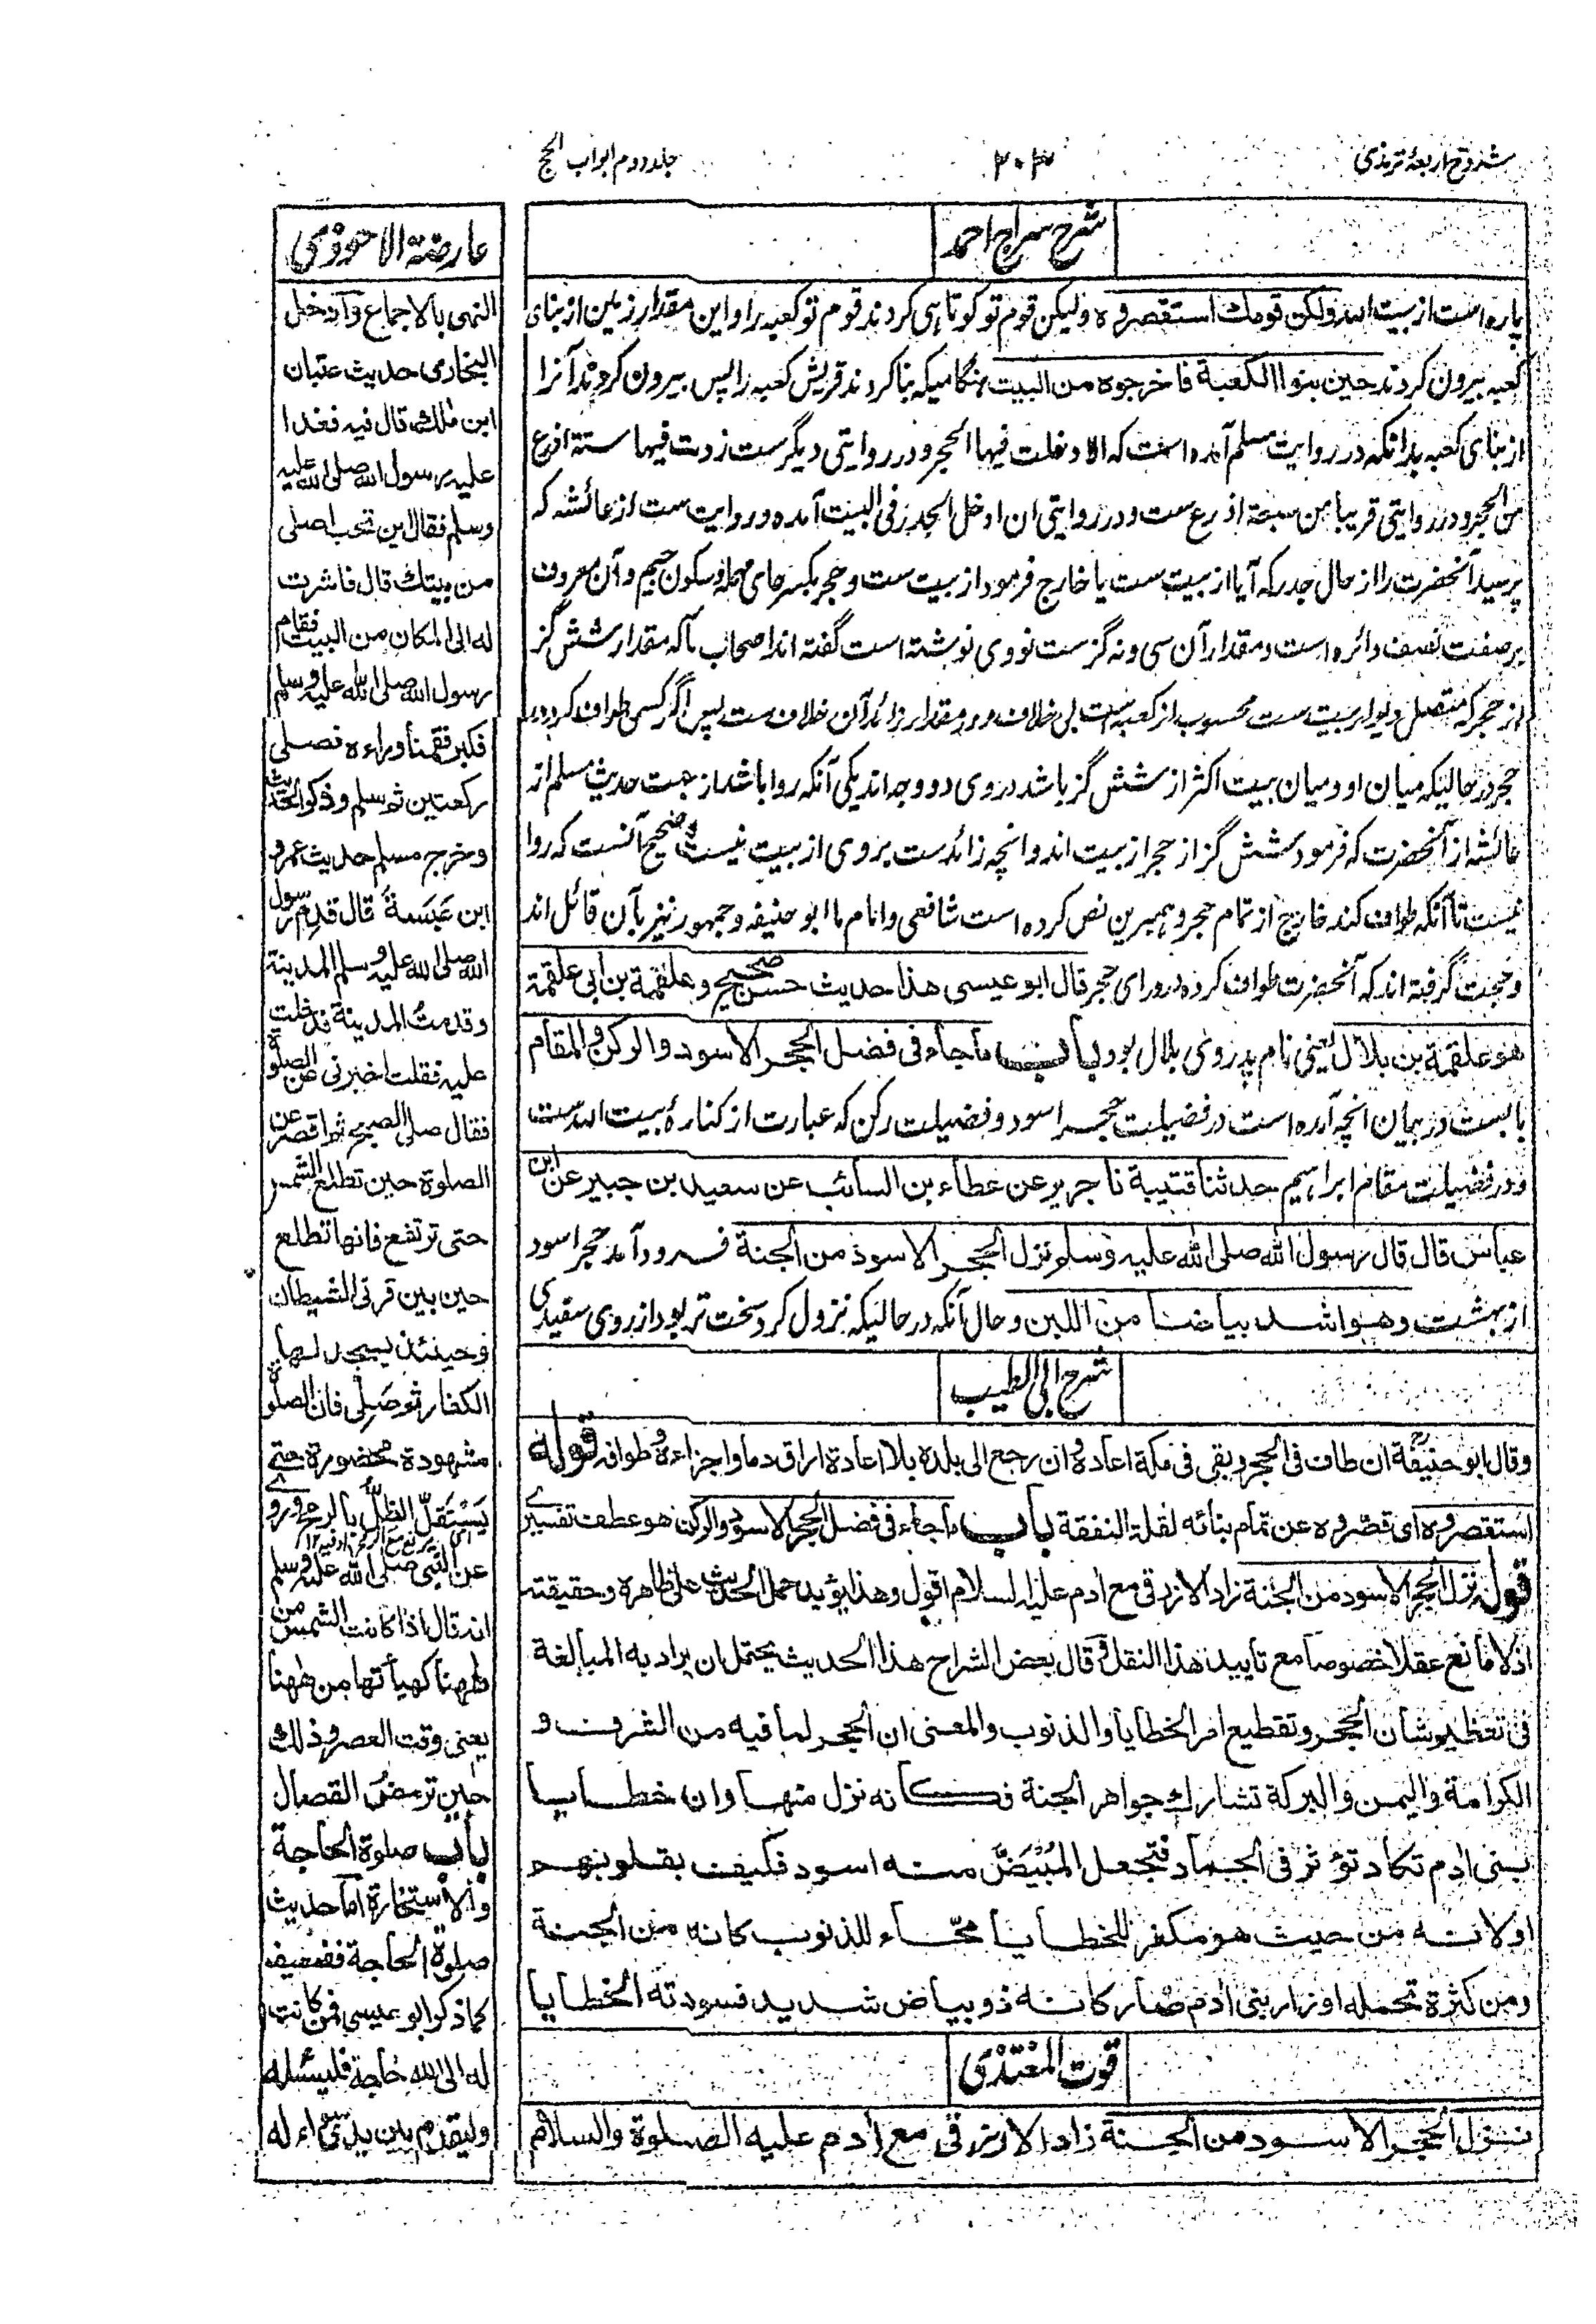 شروح اربعۂ ترمذی
۲۰۳
جلد دوم ابواب الحج
شرح سراج احمد
پاره است از بیت الله ولكن قومك استقصروه ولیکن قوم تو کوتاہی کردند قوم تو کعبہ را و این مقدار زمین از بنای
کعبہ بیرون کردند حين بنوا الكعبة فاخرجوه من البيت ہنگامیکہ بنا کردند قریش کعبہ را پس بیرون کردند آنرا
از بنای کعبہ بدانکہ در روایت مسلم آمده است کہ الا دخلت فیها الحجر و در روایتی دیگرست زدت فیها ستة اذرع
من الحجر و در روایتی قریبا من سبعة اذرع ست و در روایتی ان ادخل الجدر فی البیت آمده و روایت ست از عائشہ کہ
پرسید آنحضرت را از حال جدر کہ آیا از بیت ست یا خارج فرمود از بیت ست و حجر بکسر حای مهملہ و سکون جیم و آن معروف
بر صفت نصف دائره است و مقدار آن سی و نہ گزست نووی نوشتہ است گفتہ اند اصحاب ما کہ مقدار شش گز
از حجر کہ متصل دیوار بیت ست محسوب از کعبہ است بی خلاف و در مقدار زائد آن خلاف ست پس اگر کسی طواف کرد در
حجر در حالیکہ میان او و میان بیت اکثر از شش گز باشد در وی دو وجہ اند یکی آنکہ روا باشد از جهت حدیث مسلم از
عائشہ از آنحضرت کہ فرمود شش گز از حجر از بیت اند و انچہ زائدست بر وی از بیت نیست و صحیح آنست کہ روا
نیست تا آنکہ طواف کند خارج از تمام حجر و همبرین نص کرده است شافعی و امام ما ابو حنیفہ و جمہور نیز بآن قائل اند
و حجت گرفتہ اند کہ آنحضرت طواف کرده در ورای حجر قال ابو عيسى هذا حديث حسن صحيح وعلقمة بن ابى علقمة
هو علقمة بن بلال یعنی نام پدر وی بلال بود باب ما جاء فى فضل الحجر الاسود والركن والمقام
بابست در بیان انچہ آمده است در فضیلت حجر اسود و فضیلت رکن کہ عبارت از کنارۂ بیت الله ست
و در فضیلت مقام ابراہیم حدثنا قتيبة نا جرير عن عطاء بن السائب عن سعيد بن جبير عن ابن
عباس قال قال رسول الله صلى الله عليه وسلم نزل الحجر الاسود من الجنة فرود آمد حجر اسود
از بہشت وهو اشد بياضا من اللبن و حال آنکہ در حالیکہ نزول کرد سخت تر بود از روی سفیدی
شرح ابی الطیب
وقال ابو حنيفة ان طاف فى الحجر وبقى فى مكة اعاده وان رجع الى بلده بلا اعادة اراق دما واجزاءه طوافه قوله
استقصروه اى قصّروه عن تمام بنائه لقلة النفقة باب ما جاء فى فضل الحجر الاسود والركن هو عطف تفسيرے
قوله نزل الحجر الاسود من الجنة زاد الازرقى مع ادم عليه السلام اقول وهذا يؤيد حمل الحديث على ظاهره وحقيقته
اذ لا مانع عقلا خصوصا مع تاييد هذا النقل وقال بعض الشراح هذا الحديث يحتمل ان يراد به المبالغة
فى تعظيم شان الحجر وتقطيع امر الخطايا والذنوب والمعنى ان الحجر لما فيه من الشرف و
الكرامة واليمن والبركة تشارك جواهر الجنة فكانه نزل منها وان خطايا
بنى ادم تكاد تؤثر فى الجماد فتجعل المُبْيَضَّ منه اسود فكيف بقلوبهم
او لانه من حيث هو مكفر للخطايا محّاء للذنوب كانه من الجنة
ومن كثرة تحمله اوزار بنى ادم صار كانه ذو بياض شديد فسودته الخطايا
قوت المغتذی
نزل الحجر الاسود من الجنة زاد الازرقى مع أدم عليه الصلوة والسلام
عارضة الاحوذی
النهى بالاجماع وادخل
البخارى حديث عتبان
ابن ملك قال فيه فغدا
عليه رسول الله صلى الله عليه
وسلم فقال اين تحب اصلى
من بيتك قال فاشرت
له الى المكان من البيت فقام
رسول الله صلى الله عليه وسلم
فكبر فقمنا وراءه فصلى
ركعتين ثم سلم وذكر الحديث
وخرج مسلم حديث عمرو
ابن عَبَسَةَ قال قدم رسول
الله صلى الله عليه وسلم المدينة
وقدمتُ المدينة فدخلت
عليه فقلت اخبرنى عن الصلوة
فقال صلى الصبح ثم اقصر عن
الصلوة حين تطلع الشمس
حتى ترتفع فانها تطلع
حين بين قرنى الشيطان
وحينئذ يسجد لها
الكفار ثم صَلِّ فان الصلوة
مشهودة محضورة حتے
يَسْتَقِلّ الظلُّ بالرمح وروے
عن النبى صلى الله عليه وسلم
انه قال اذا كانت الشمس من
ههنا كهيأتها من ههنا
يعنى وقت العصر وذلك
حين ترمضُ الفصال
باب صلوة الحاجة
والاستخارة اما حديث
صلوة الحاجة فضعيف
كما ذكر ابو عيسى فمن كانت
له الى الله حاجة فليسئله
وليقدم بين يدى سواءله